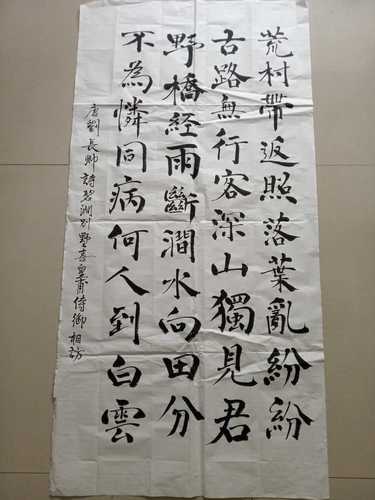 荒村帶返照落葉亂紛紛
古路無行客深山獨見君
野橋経雨斷澗水向田分
不為憐同病何人到白雲
唐劉長卿詩碧澗別墅喜皇甫侍御相訪